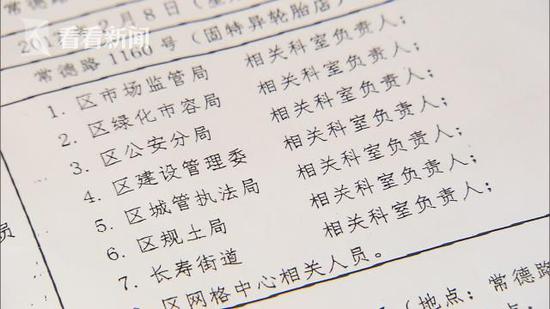 常德路
看看新闻
2月8日（星
常德路1160号（固特异轮胎店）
1. 区市场监管局 相关科室负责人；
2. 区绿化市容局 相关科室负责人；
3. 区公安分局 相关科室负责人；
4. 区建设管理委 相关科室负责人；
5. 区城管执法局 相关科室负责人；
6. 区规土局 相关科室负责人；
7. 长寿街道 相关科室负责人；
区网格中心相关人员。
员
（地点：常德路